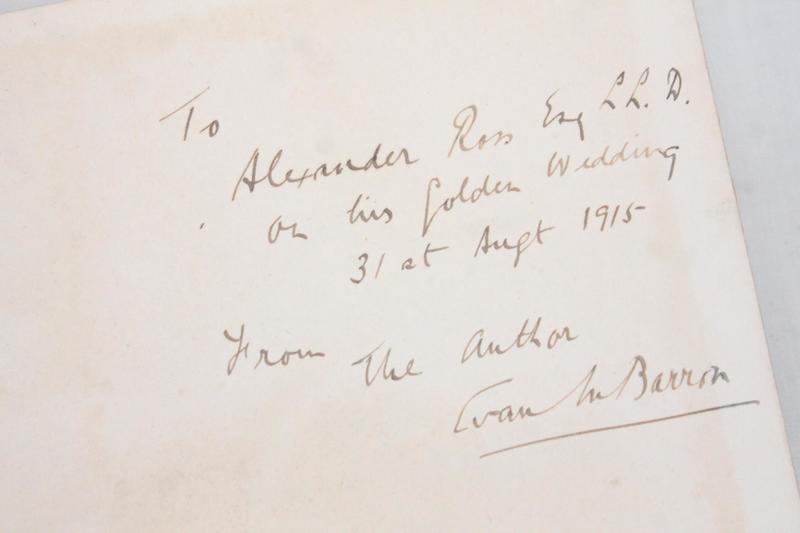 To
Alexander Ross Esq LL.D.
on his Golden Wedding
31st Augt 1915
From The Author
Evan M Barron